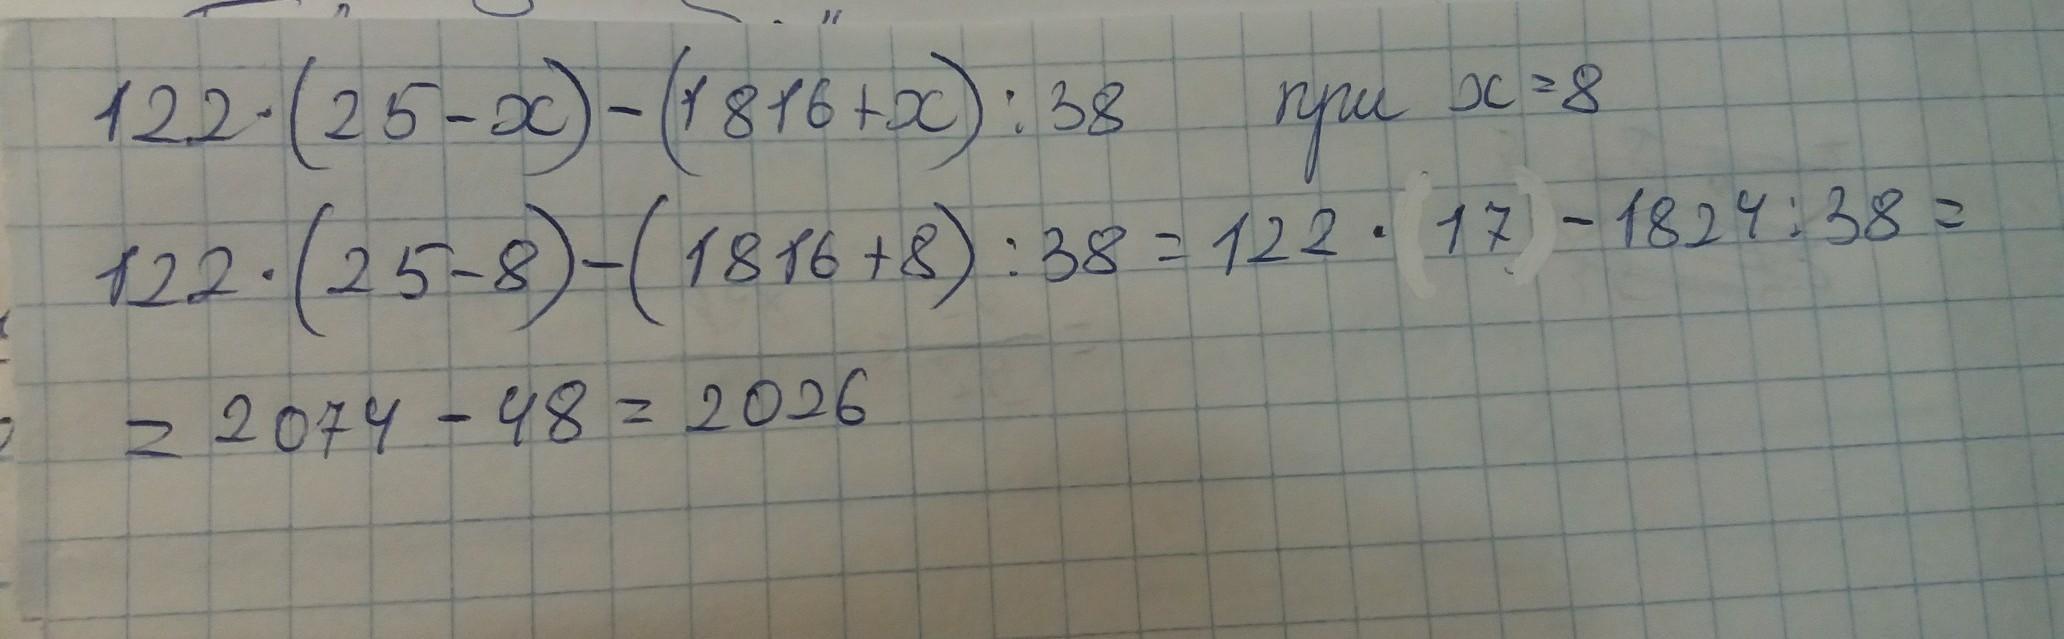 122·(25-x)-(1816+x):38 при x=8
122·(25-8)-(1816+8):38=122·(17)-1824:38=
=2074-48=2026